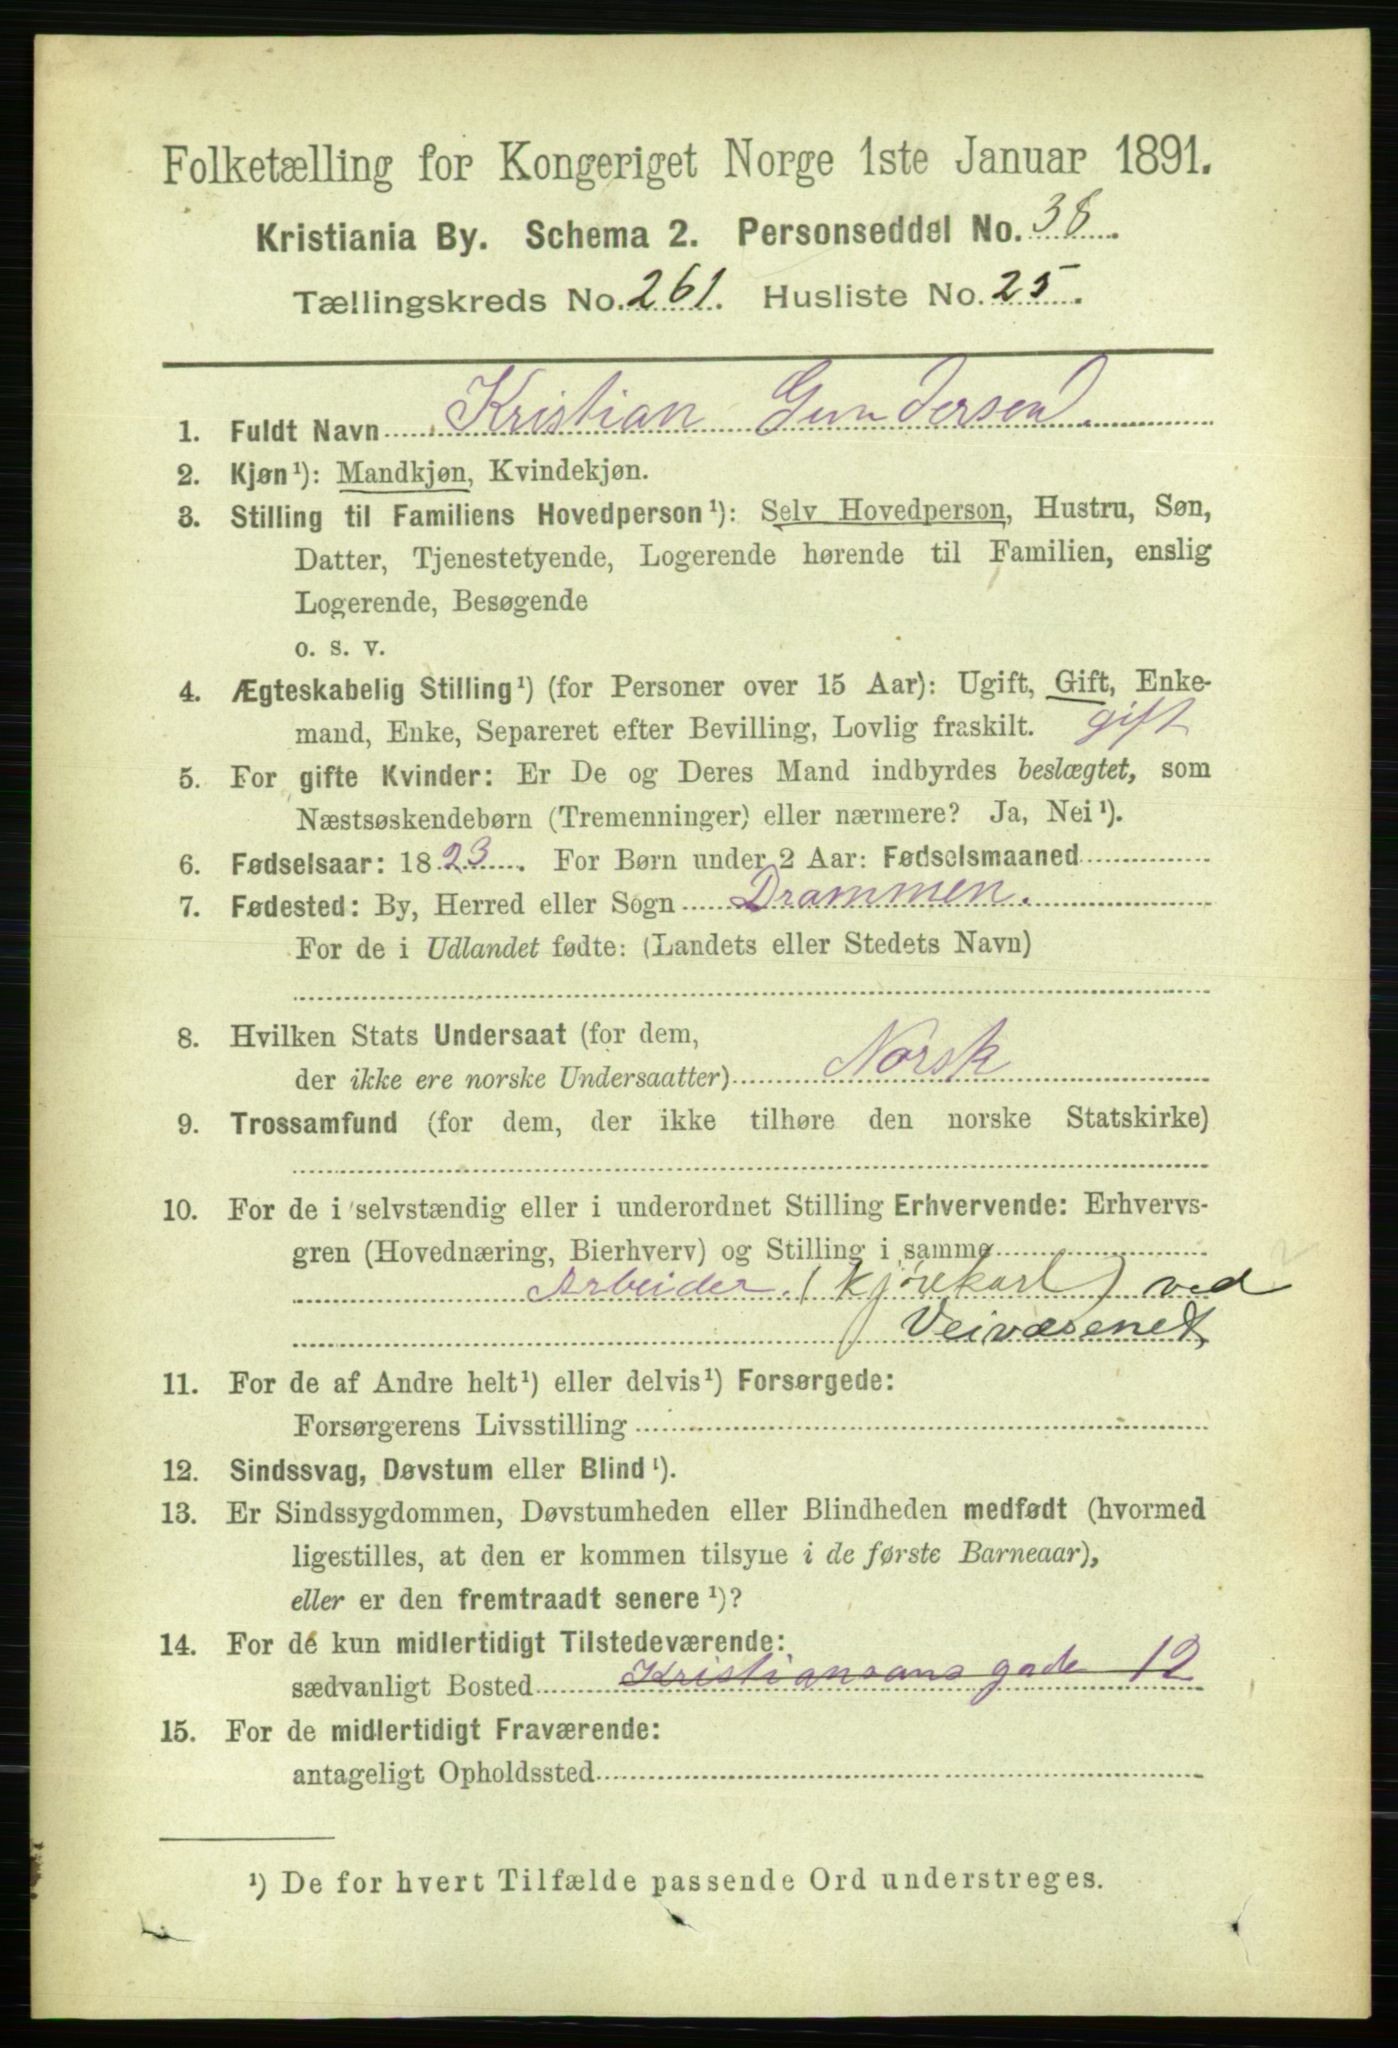 Folketælling for Kongeriget Norge 1ste Januar 1891.
Kristiania By. Schema 2. Personseddel No. 38.
Tællingskreds No. 261. Husliste No. 25.
1. Fuldt Navn Kristian Gundersen
2. Kjøn¹): Mandkjøn, Kvindekjøn.
3. Stilling til Familiens Hovedperson¹): Selv Hovedperson, Hustru, Søn,
Datter, Tjenestetyende, Logerende hørende til Familien, enslig
Logerende, Besøgende
o. s. v.
4. Ægteskabelig Stilling¹) (for Personer over 15 Aar): Ugift, Gift, Enke-
mand, Enke, Separeret efter Bevilling, Lovlig fraskilt. gift
5. For gifte Kvinder: Er De og Deres Mand indbyrdes beslægtet, som
Næstsøskendebørn (Tremenninger) eller nærmere? Ja, Nei¹).
6. Fødselsaar: 1823. For Børn under 2 Aar: Fødselsmaaned
7. Fødested: By, Herred eller Sogn Drammen.
For de i Udlandet fødte: (Landets eller Stedets Navn)
8. Hvilken Stats Undersaat (for dem,
der ikke ere norske Undersaatter) Norsk
9. Trossamfund (for dem, der ikke tilhøre den norske Statskirke)
10. For de i selvstændig eller i underordnet Stilling Erhvervende: Erhvervs-
gren (Hovednæring, Bierhverv) og Stilling i samme
Arbeider. (kjørekarl) ved
Veivæsenet
11. For de af Andre helt¹) eller delvis¹) Forsørgede:
Forsørgerens Livsstilling
12. Sindssvag, Døvstum eller Blind¹).
13. Er Sindssygdommen, Døvstumheden eller Blindheden medfødt (hvormed
ligestilles, at den er kommen tilsyne i de første Barneaar),
eller er den fremtraadt senere¹)?
14. For de kun midlertidigt Tilstedeværende:
sædvanligt Bosted Kristiansans gade 12
15. For de midlertidigt Fraværende:
antageligt Opholdssted
¹) De for hvert Tilfælde passende Ord understreges.